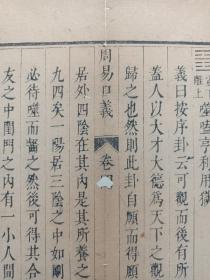 離上 噬嗑亨利用獄
義曰按序卦云可觀而後有所
蓋人以大才大德為天下之觀
歸之也然則此卦自頤而得頤
周易口義 卷
居外四陰在內是其所養之
九四矣一陽居三陰之中如剛
必待噬而齧之然後可得其合
友之中閨門之內有一小人間